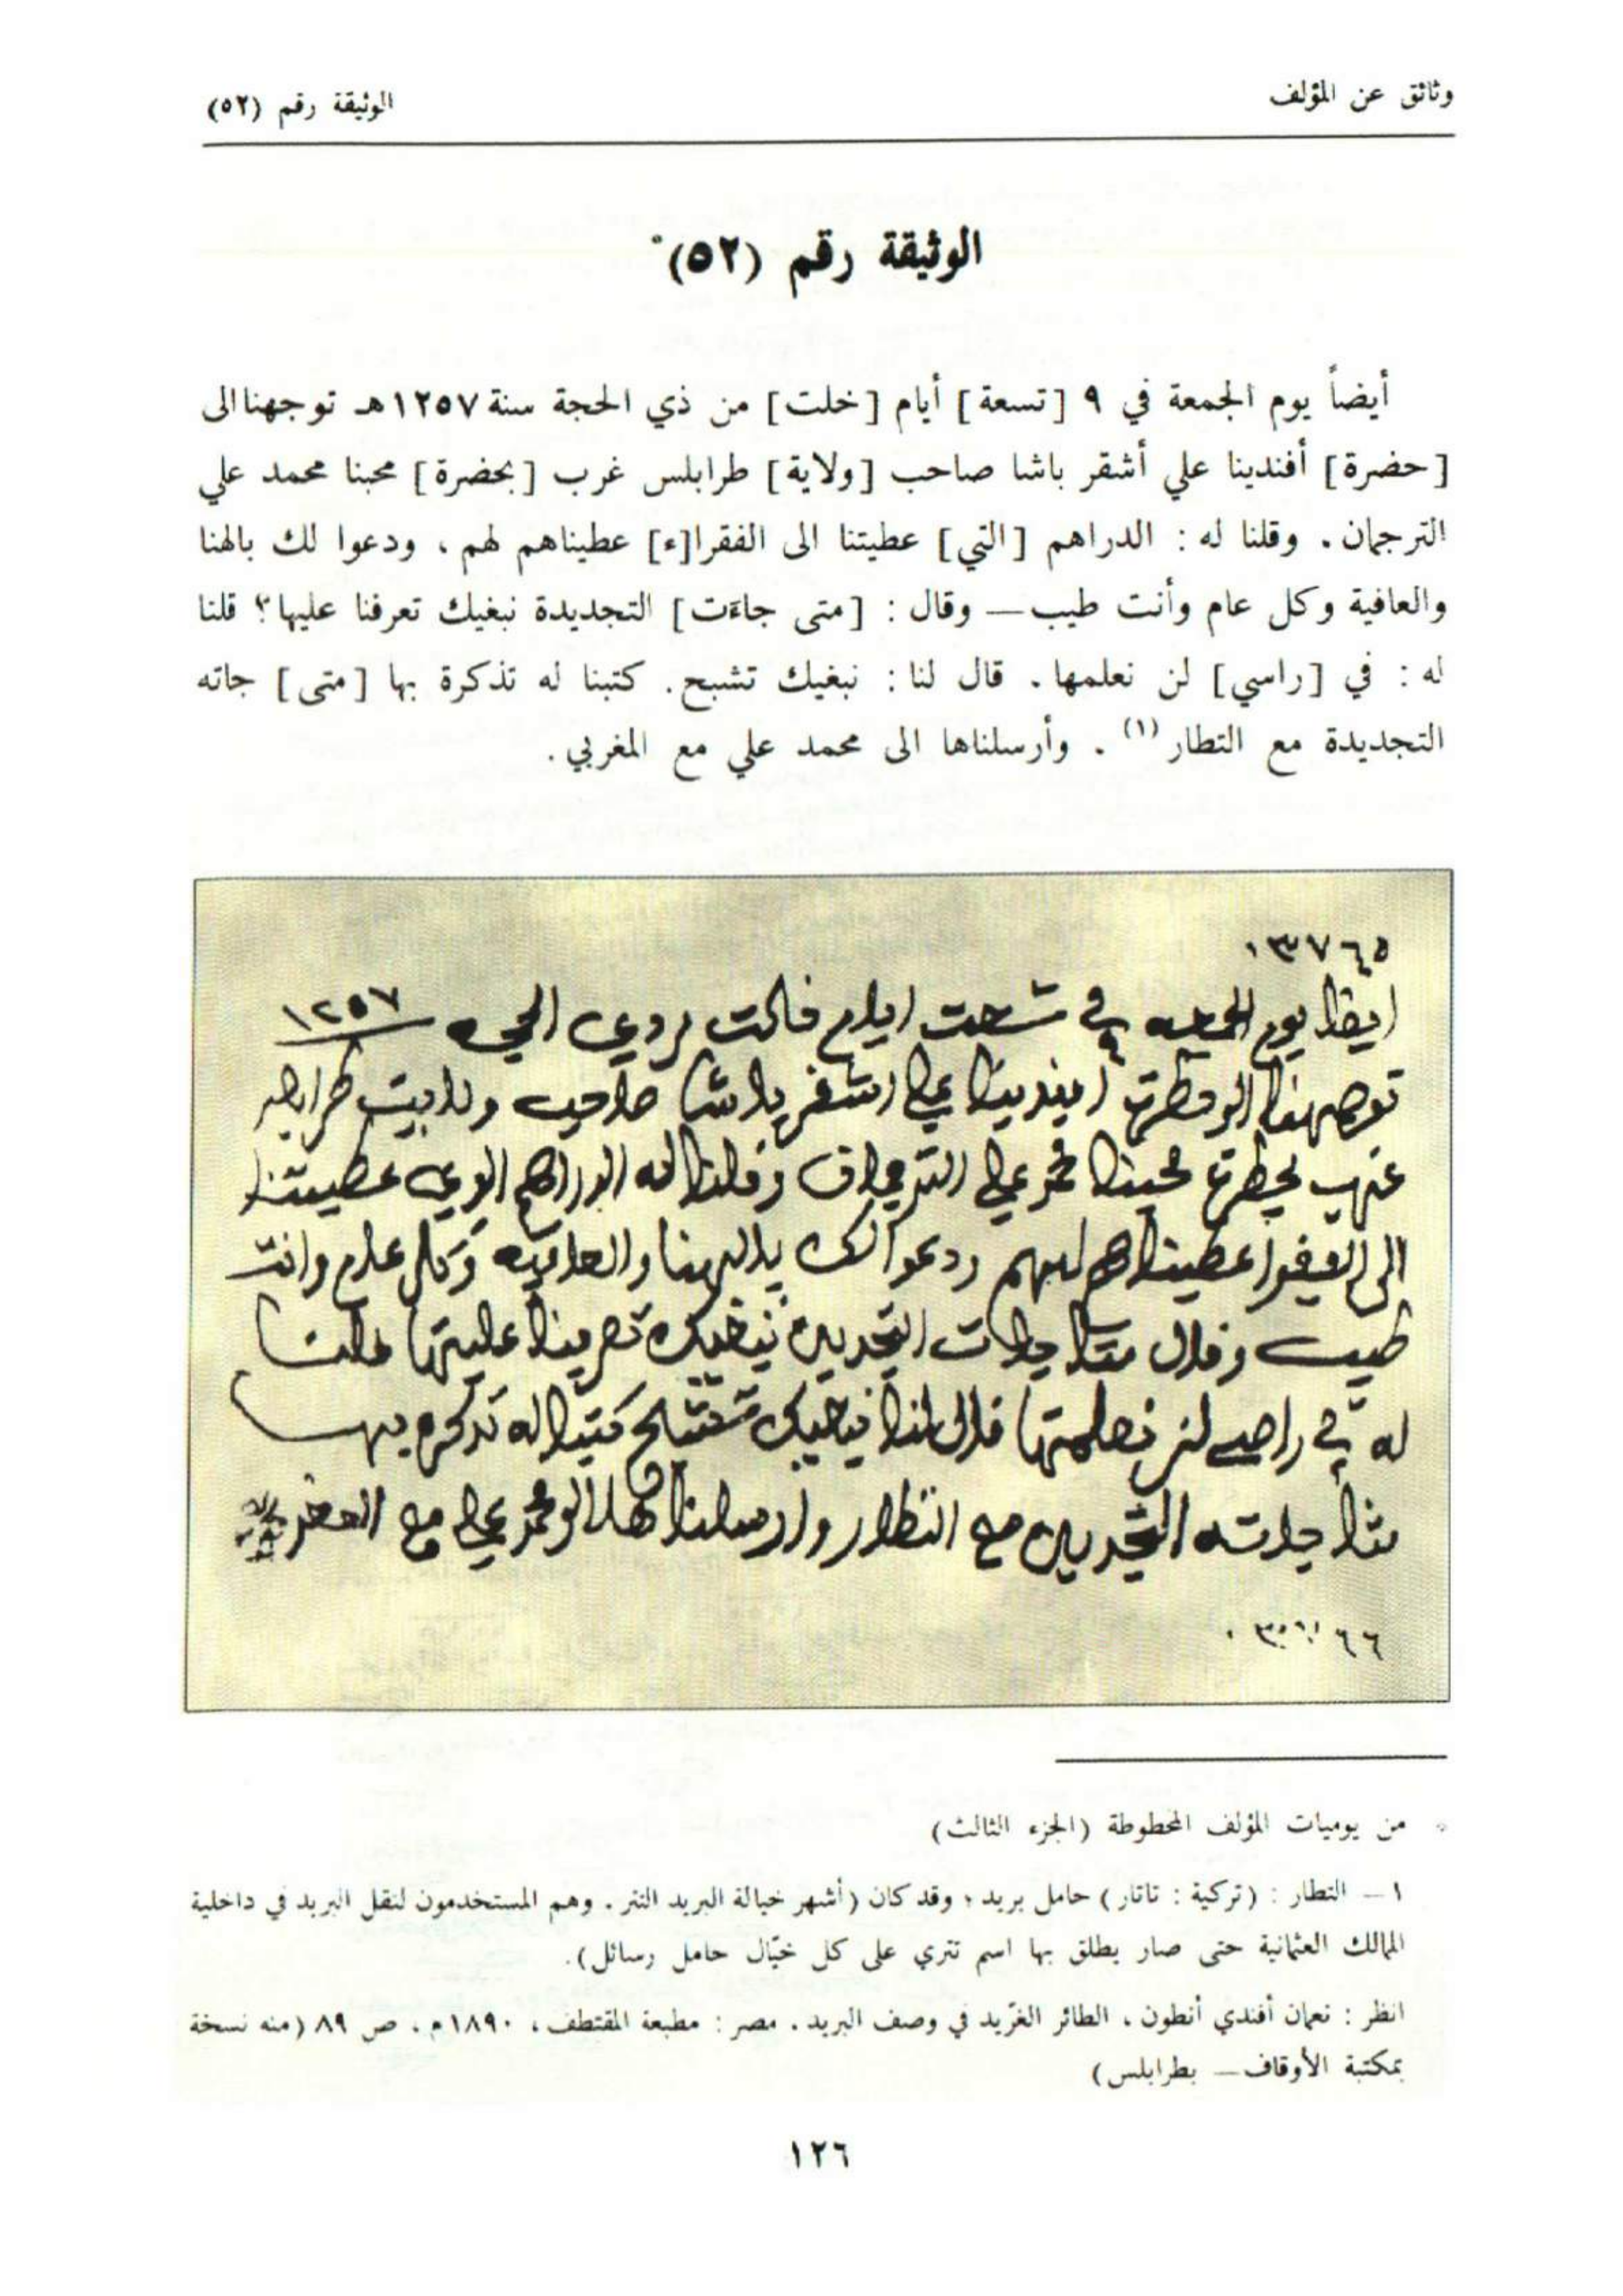 وثائق عن المؤلف
الوثيقة رقم (٥٢)
الوثيقة رقم (٥٢)*
أيضاً يوم الجمعة في ٩ [تسعة] أيام [خلت] من ذي الحجة سنة ١٢٥٧هـ توجهنا الى
[حضرة] أفندينا علي أشقر باشا صاحب [ولاية] طرابلس غرب [بحضرة] محبنا محمد علي
الترجمان. وقلنا له : الدراهم [التي] عطيتنا الى الفقرا[ء] عطيناهم لهم ، ودعوا لك بالهنا
والعافية وكل عام وأنت طيب ــ وقال : [متى جاءت] التجديدة نبغيك تعرفنا عليها؟ قلنا
له : في [راسي] لن نعلمها . قال لنا : نبغيك تشبح. كتبنا له تذكرة بها [متى] جاته
التجديدة مع التطار (١) . وأرسلناها الى محمد علي مع المغربي .
ايظا يوم الجمعه في تسعت ايام خالت ١٢٥٧
توجهنا افيندينا علي اشقر باشا صاحب ولايت
محبنا محمد علي الترجمان وقلنا له عطيتنا
الى الفقرا عطيناهم لهم ودعوا لك والعافيه وكل عام وانت
طيب وقال متا جات التجديده
له في راصي لن قال لنا كتبنا له تذكره بها
متا جاته التجديده مع التطار وارسلنا محمد علي مع
* من يوميات المؤلف المخطوطة (الجزء الثالث)
١ ــ التطار : (تركية : تاتار) حامل بريد ؛ وقد كان (أشهر خيالة البريد التتر . وهم المستخدمون لنقل البريد في داخلية
الممالك العثمانية حتى صار يطلق بها اسم تتري على كل خيّال حامل رسائل).
انظر : نعمان أفندي أنطون ، الطائر الغرّيد في وصف البريد . مصر : مطبعة المقتطف ، ١٨٩٠م . ص ٨٩ (منه نسخة
بمكتبة الأوقاف ــ بطرابلس)
١٢٦